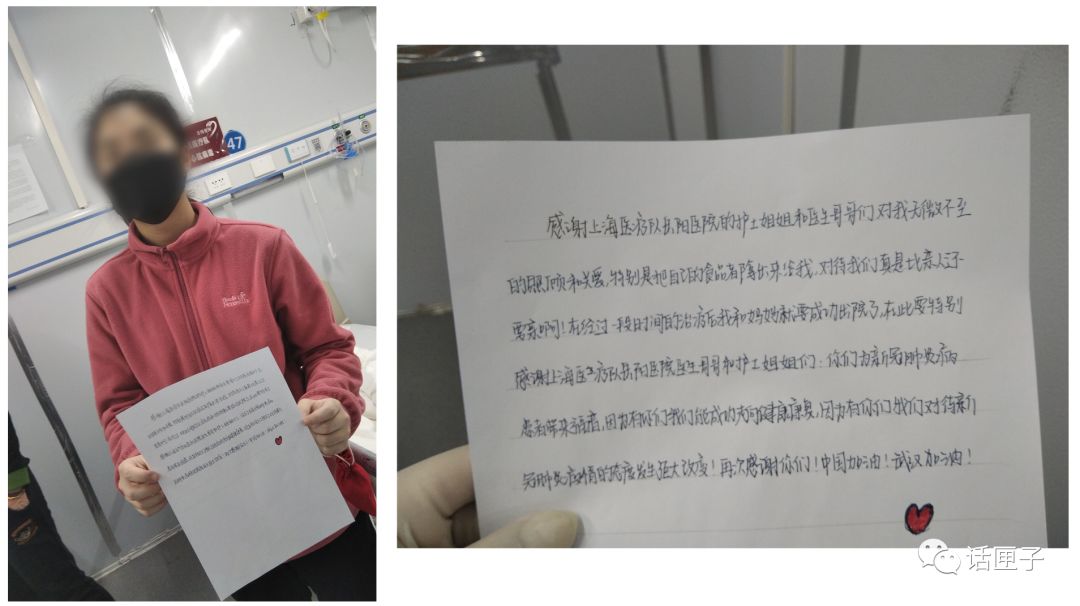 47
感谢上海医疗队岳阳医院的护士姐姐和医生哥哥们对我无微不至
的照顾和关爱,特别是把自己的食品都降出来给我,对待我们真是比亲人还
要亲啊!在经过一段时间的治疗后我和妈妈就要成功出院了,在此要特别
感谢上海医疗队岳阳医院医生哥哥和护士姐姐们:你们为新冠肺炎病
患者带来福音,因为有你们我们能成功走向健康康复,因为有你们我们对待新
冠肺炎疫情的态度发生极大改变!再次感谢你们!中国加油!武汉加油!
话匣子